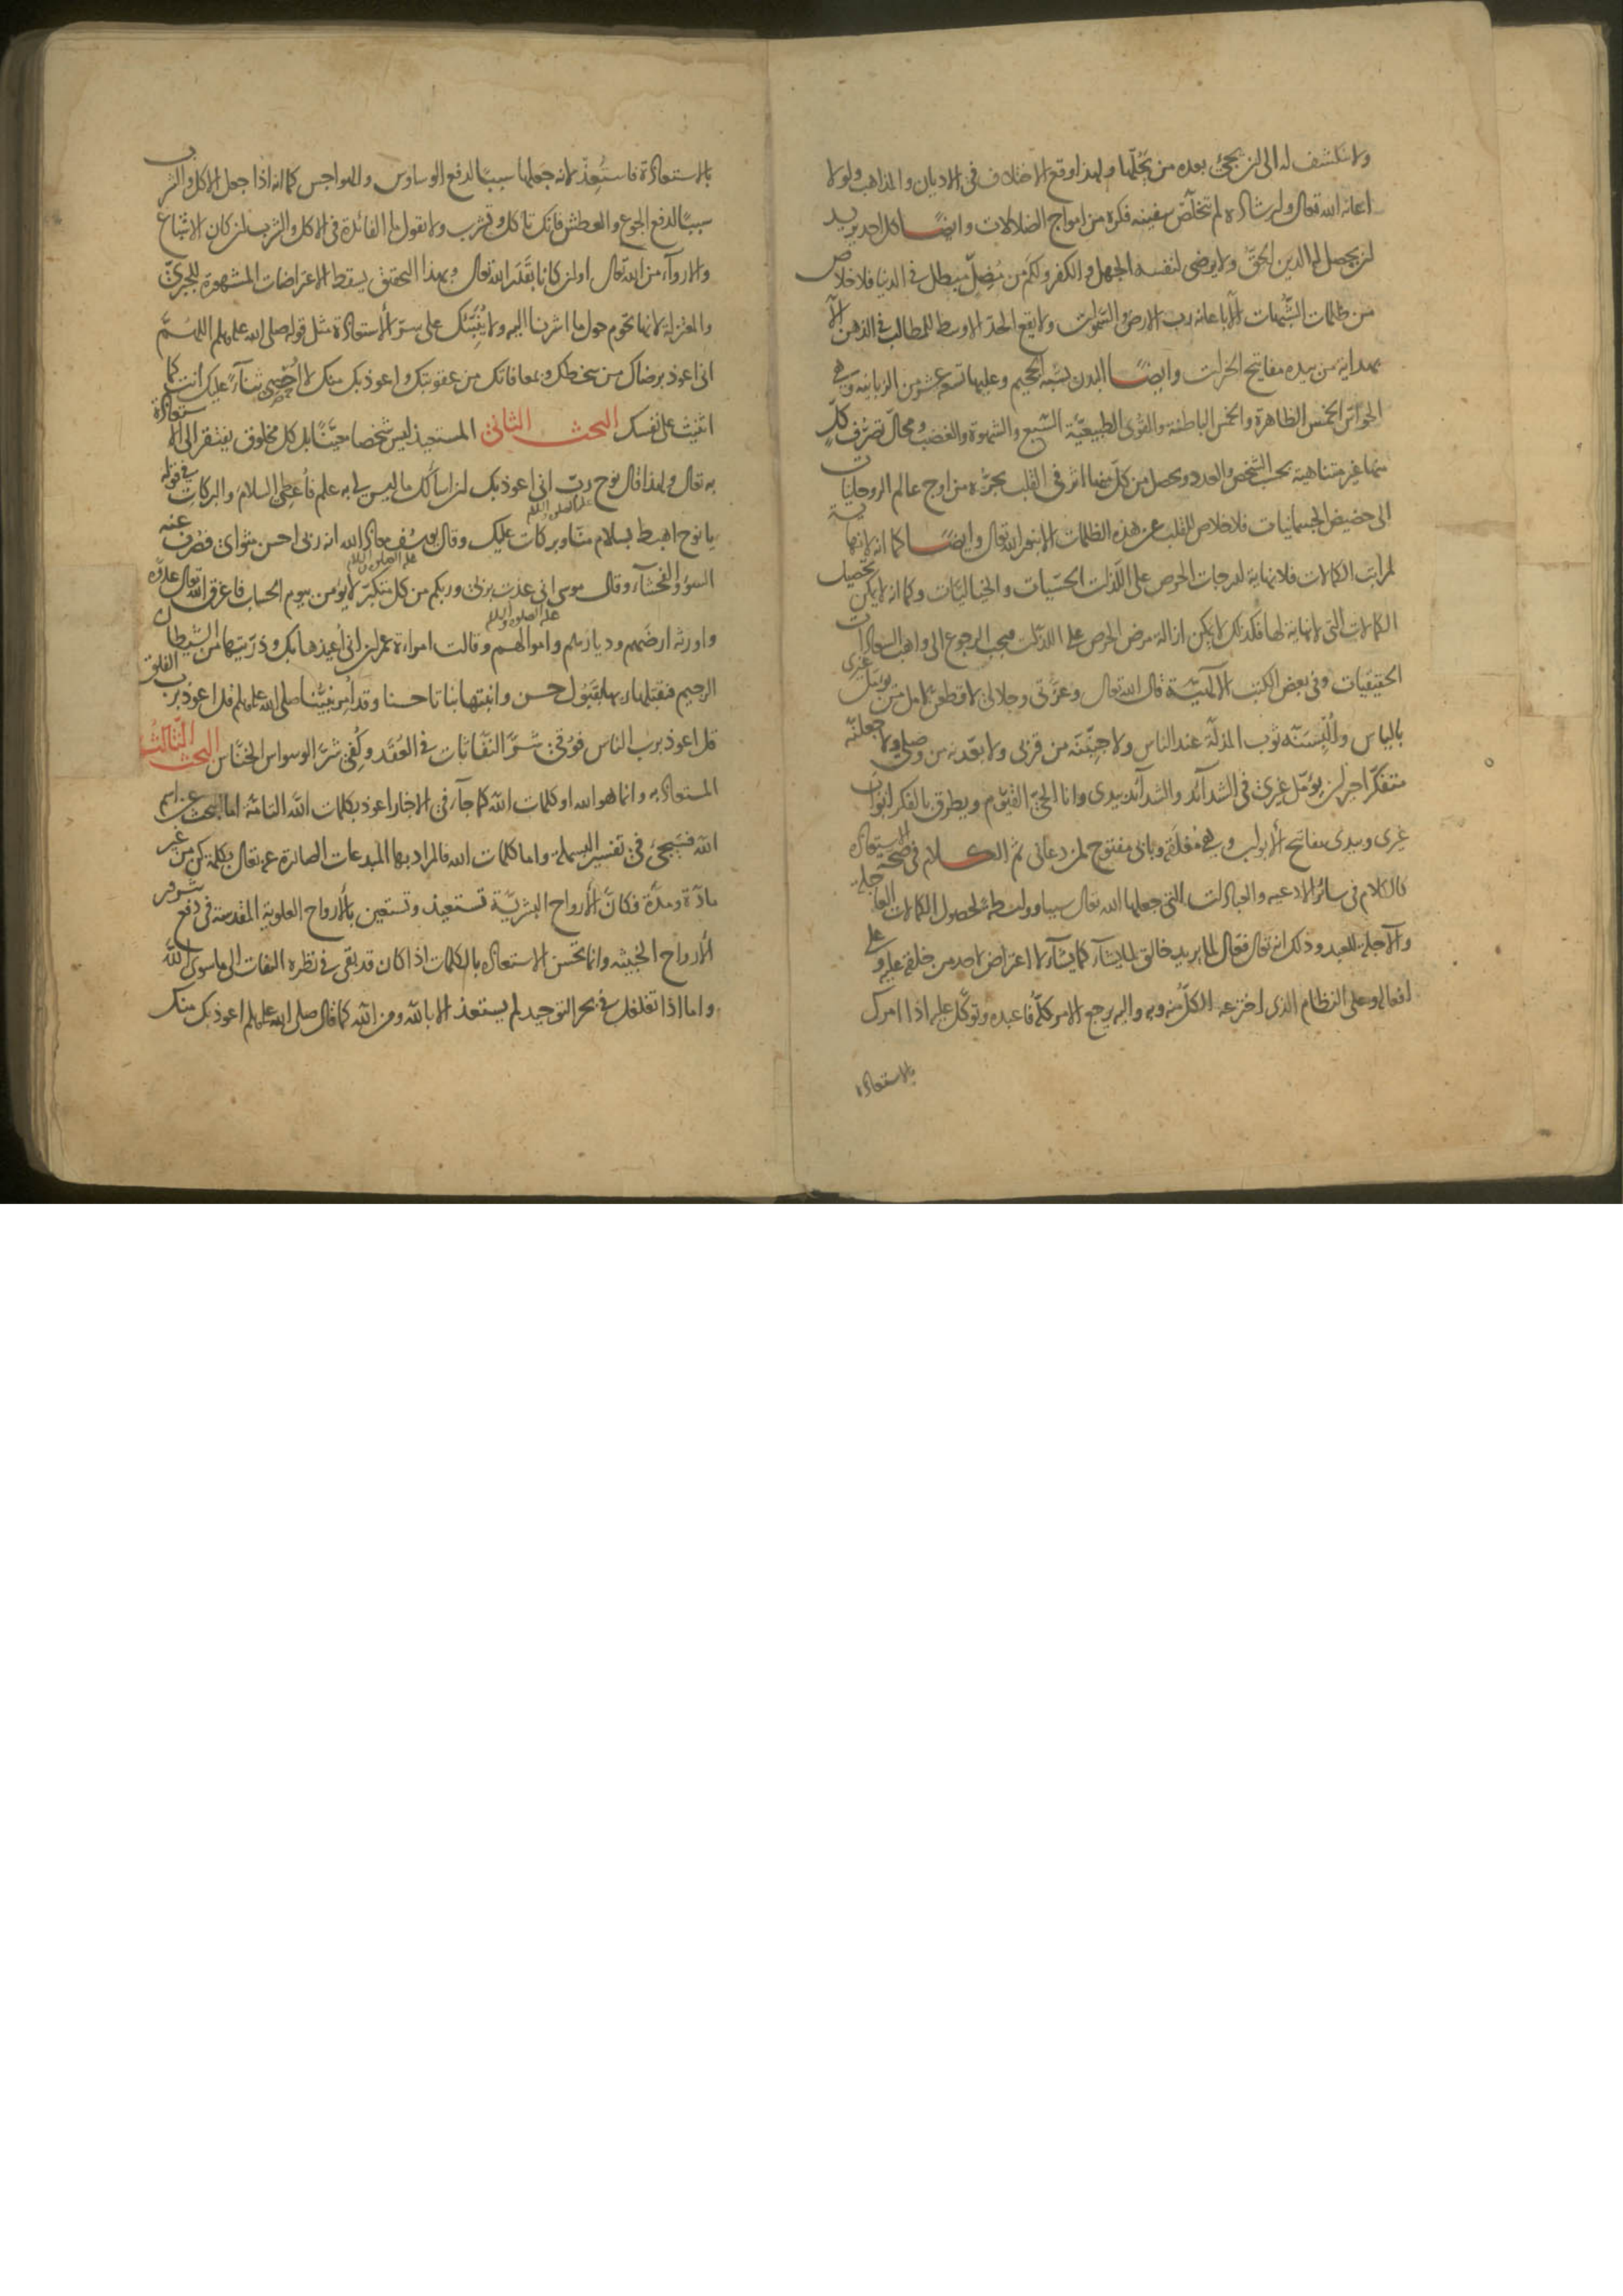 ولا ينكشف له الى ان يجئ بعده من يحلها ولهذا وقع الاختلاف فى الاديان والمذاهب ولولا
اعانة الله تعالى وارشاده لم تتخلص سفينة فكره من امواج الضلالات وايضا كل احد يريد
ان يحصل له الدين الحق ولا يرضى لنفسه الجهل والكفر ولكم من مضل مبطل فى الدنيا فلا خلاص
من ظلمات الشبهات الا باعانة رب الارض والسموات ولا يقع الحد الاوسط للمطالب فى الذهن الا
بهداية من بيده مفاتيح الخيرات وايضا البدن يشبه الجحيم وعليها تسعة عشر من الزبانية وهى
الحواس الخمس الظاهرة والخمس الباطنة والقوى الطبيعية السبع والشهوة والغضب ومحال تصرف كل
منها غير متناهية بحسب الشخص والعدد ويحصل من كل منها اثر فى القلب يجره من اوج عالم الروحانيات
الى حضيض الجسمانيات فلا خلاص للقلب عن هذه الظلمات الا بنور الله تعالى وايضا كما انه لا نهاية
لمراتب الكمالات فلا نهاية لدرجات الحرص على اللذات الحسيات والخياليات وكما انه لا يمكن تحصيل
الكمالات التى لا نهاية لها فكذلك لا يمكن ازالة مرض الحرص على اللذات فيجب الرجوع الى واهب السعادات
الحقيقيات وفى بعض الكتب الالهية قال الله تعالى وعزتى وجلالى لاقطعن امل من يؤمل غيرى
بالياس ولألبسنه ثوب المذلة عند الناس ولاجنبنه من قربى ولابعدنه من وصلى ولاجعلنه
متفكرا حيران يؤمل غيرى فى الشدائد والشدائد بيدى وانا الحى القيوم ويطرق بالفكر ابواب
غيرى وبيدى مفاتيح الابواب وهى مغلقة وبابى مفتوح لمن دعانى ثم الكلام فى صحة الاستعاذة
كالكلام فى سائر الادعية والعبادات التى جعلها الله تعالى سببا وواسطة لحصول الكمالات العاجلة
والآجلة للعبد وذلك انه تعالى فعال لما يريد خالق لما يشاء كما يشاء لا اعتراض لاحد من خلقه عليه وعلى
افعاله وعلى النظام الذى اخترعه الكل منه وبه واليه يرجع الامر كله فاعبده وتوكل عليه اذا امرك
بالاستعاذة
بالاستعاذة فاستعذ لانه جعلها سببا لدفع الوساوس والهواجس كما انه اذا جعل الاكل والشرب
سببا لدفع الجوع والعطش فانك تاكل وتشرب ولا تقول ما الفائدة فى الاكل والشرب ان كان الاشباع
والارواء من الله تعالى او ان كانا بقدر الله تعالى وبهذا التحقيق يسقط الاعتراضات المشهورة للجبرى
والمعتزلة لانها تحوم حول ما اشرنا اليه ولا ينبئك على سر الاستعاذة مثل قوله صلى الله عليه وسلم اللهم
انى اعوذ برضاك من سخطك وبمعافاتك من عقوبتك واعوذ بك منك لا احصى ثناء عليك انت كما
اثنيت على نفسك البحث الثانى المستعيذ ليس شخصا معينا بل كل مخلوق يفتقر الى الاستعاذة
به تعالى ولهذا قال نوح رب انى اعوذ بك ان اسألك ما ليس لى به علم فأعطى السلام والبركات فى قوله
يا نوح اهبط بسلام منا وبركات عليك وقال يوسف عليه الصلوة والسلام معاذ الله انه ربى احسن مثواى فصرف عنه
السوء والفحشاء وقال موسى عليه الصلوة والسلام انى عذت بربى وربكم من كل متكبر لا يؤمن بيوم الحساب فاغرق الله تعالى عدوه
واورثه ارضهم وديارهم واموالهم وقالت امراة عمران عليه الصلوة والسلام انى أعيذها بك وذريتها من الشيطان
الرجيم فتقبلها ربها بقبول حسن وانبتها نباتا حسنا وقد أمر نبينا صلى الله عليه وسلم قل اعوذ برب الفلق
قل اعوذ برب الناس فوقى شر النفاثات فى العقد وكفى شر الوسواس الخناس البحث الثالث
المستعاذ به وانما هو الله او كلمات الله كما جاء فى الاخبار اعوذ بكلمات الله التامة اما البحث عن اسم
الله فسيجئ فى تفسير البسملة واما كلمات الله فالمراد بها المبدعات الصادرة عنه تعالى بكلمة كن من غير
مادة ومدة فكان الارواح البشرية تستعيذ وتستعين بالارواح العلوية المقدسة فى دفع شرور
الارواح الخبيثة وانما تحسن الاستعاذة بالكلمات اذا كان قد بقى فى نظره التفات الى ما سوى الله
واما اذا تغلغل فى بحر التوحيد لم يستعذ الا بالله ومن الله كما قال صلى الله عليه وسلم اعوذ بك منك